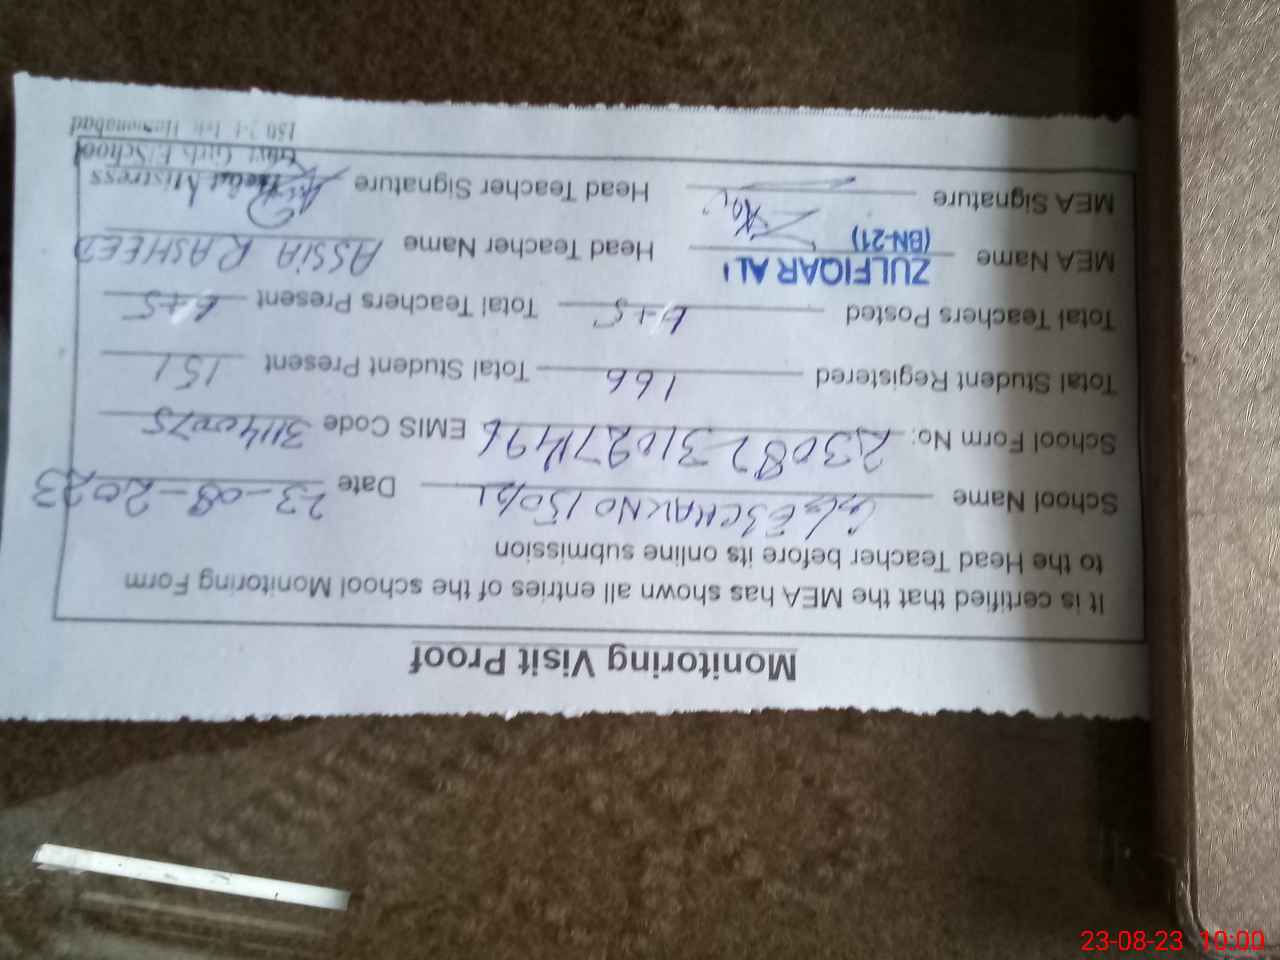 Monitoring Visit Proof
It is certified that the MEA has shown all entries of the school Monitoring Form
to the Head Teacher before its online submission
School Name GGES CHAK NO 150/2L Date 23-08-2023
School Form No: EMIS Code
Total Student Registered 166 Total Student Present 151
Total Teachers Posted 6+5 Total Teachers Present 6+5
MEA Name ZULFIQAR ALI (BN-21) Head Teacher Name ASSIA RASHEED
MEA Signature Head Teacher Signature
Head Mistress
Govt. Girls E/School
23-08-23 10:00